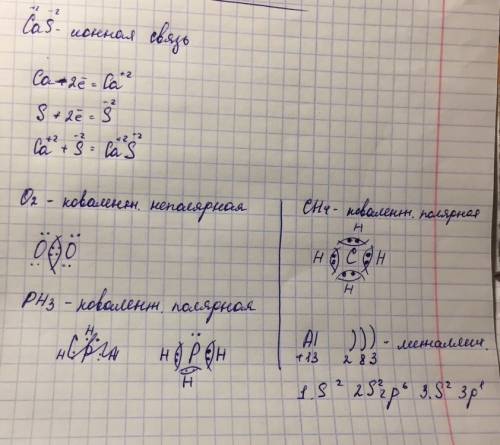 Ca⁺²S⁻² - ионная связь
Ca - 2ē = Ca⁺²
S + 2ē = S⁻²
Ca⁺² + S⁻² = Ca⁺²S⁻²
O₂ - ковалент. неполярная
O O
PH₃ - ковалент. полярная
H
H P H
H
CH₄ - ковалент. полярная
H
H C H
H
Al ))) - металлич.
+13 2 8 3
1.S² 2S²2p⁶ 3.S² 3p¹